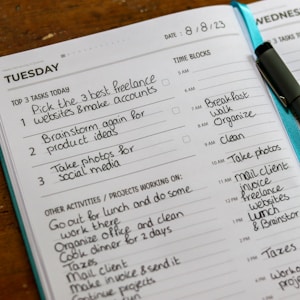 DATE: 8/8/23
TUESDAY
WEDNES
TOP 3 TASKS TODAY
TIME BLOCKS
1 Pick the 3 best freelance
websites & make accounts
2 Brainstorm again for
product ideas
3 Take photos for
social media
5 AM
6 AM
7 AM Breakfast
walk
8 AM Organize
9 AM Clean
10 AM Take photos
11 AM Mail client
invoice
12 PM freelance
websites
1 PM Lunch
& Brainstor
2 PM
3 PM Taxes
OTHER ACTIVITIES / PROJECTS WORKING ON:
Go out for lunch and do some
work there
Organize office and clean
Cook dinner for 2 days
Taxes
Mail client
Make invoice & send it
Continue projects
Workou
proje
Taxes
TOP
1
2
3
OTHE